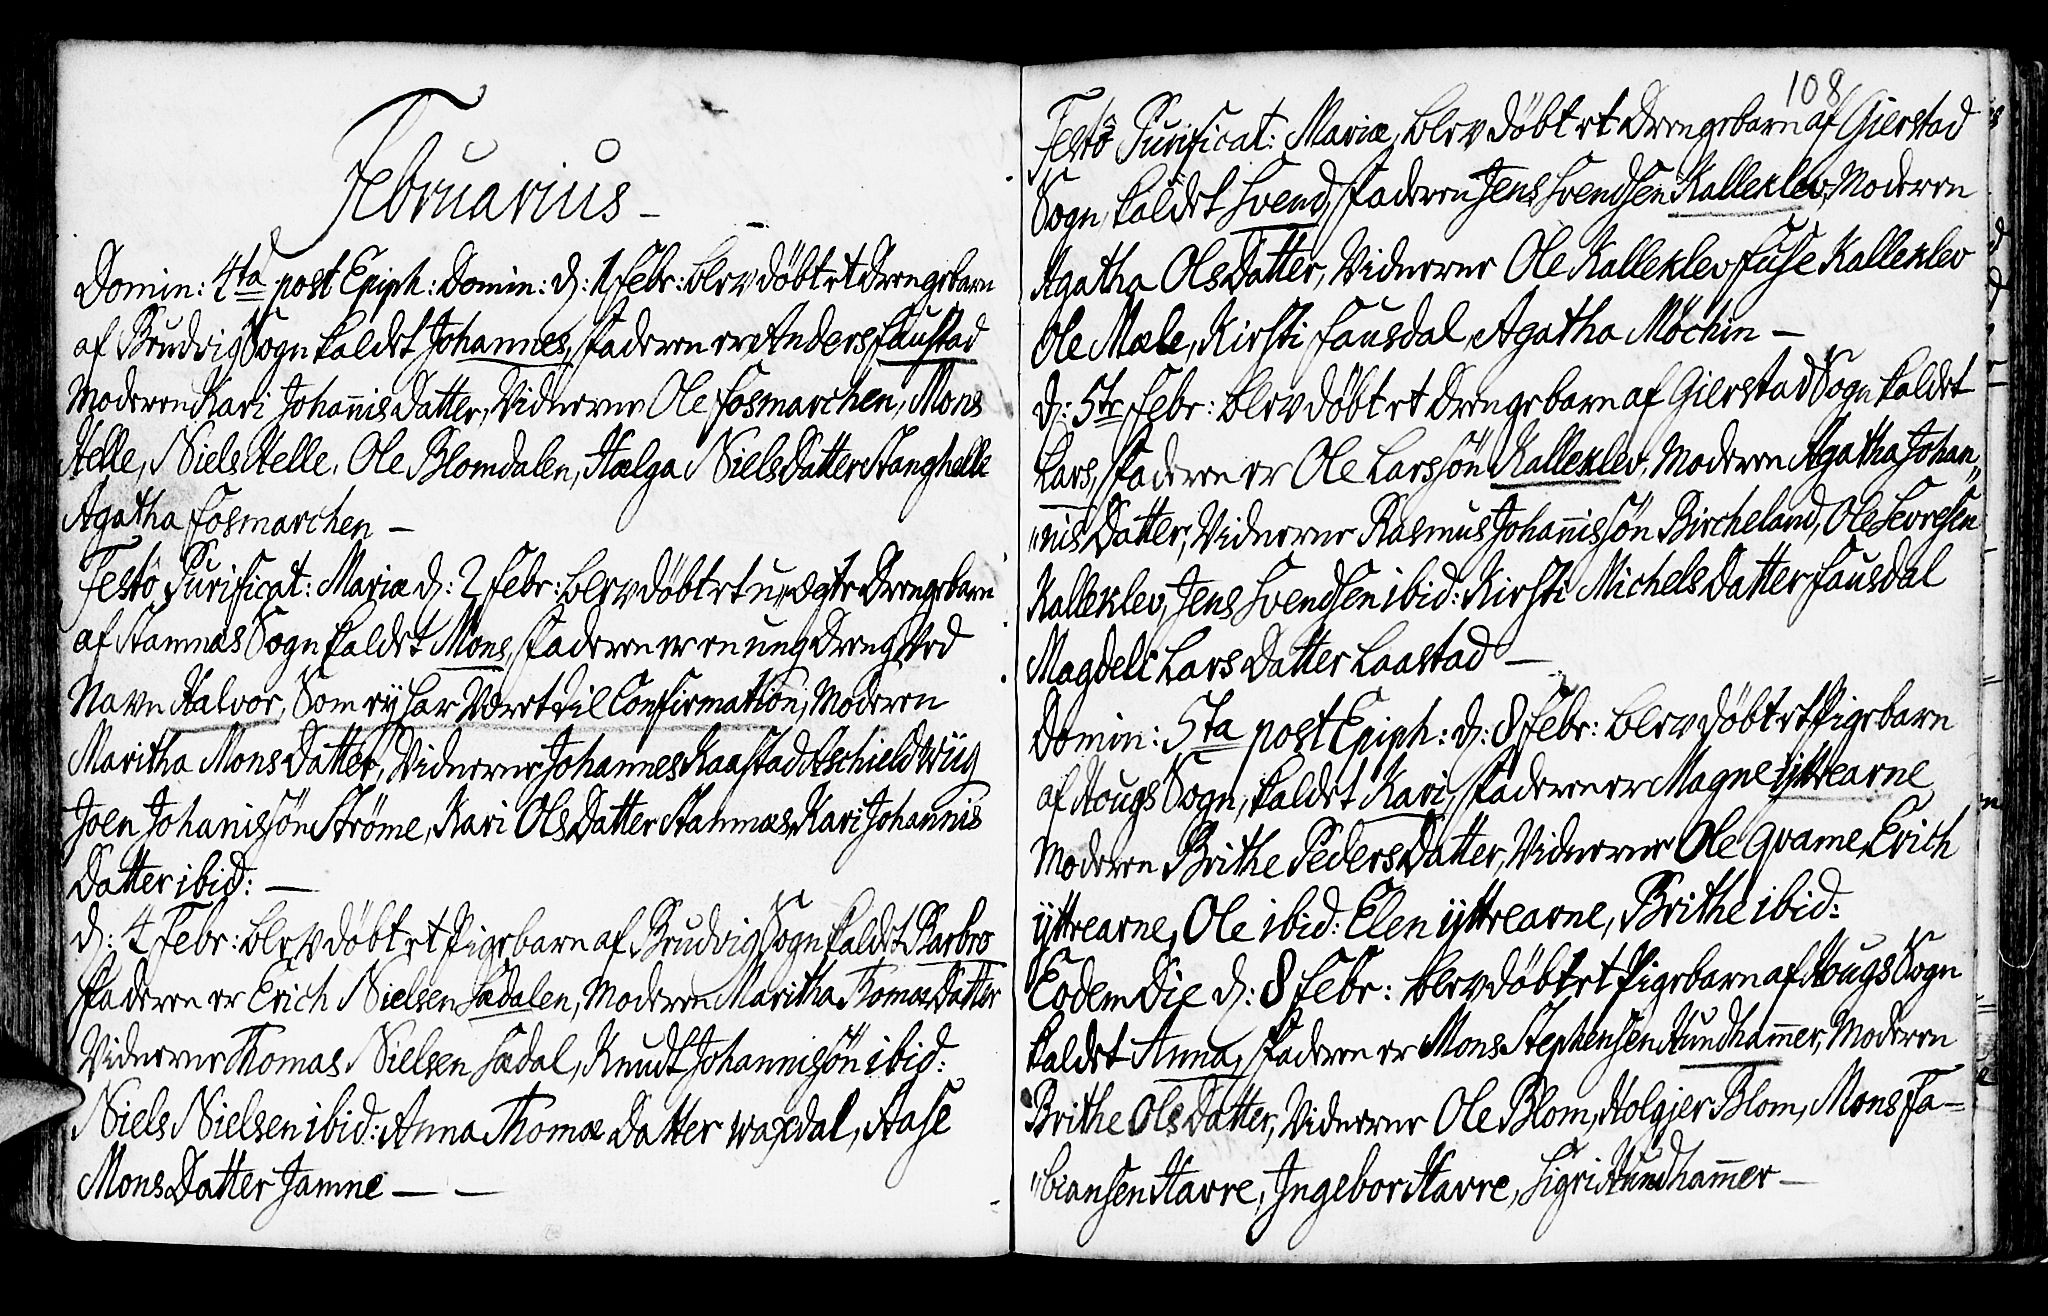 Februarius
Domin: 4ta post Epiph: Domin: d: 1 Febr: blev döbt et Drengebarn
af Brudvig Sogn kaldet Johannes, Faderen er Anders Faustad
Moderen Kari Johannis Datter, Vidnerne Ole Fosmarchen, Mons
Helle, Niels Helle, Ole Blomdalen, Hælga Niels Datter Stanghelle
Agatha Fosmarchen —
Festo Purificat: Mariæ d: 2 Febr: blev döbt et uægte Drengebarn
af Stamnæs Sogn kaldet Mons, Faderen er en ung Dreng Ved
Navn Halvor, Som ey har Været til Confirmation, Moderen
Maritha Mons Datter, Vidnerne Johannes Kaastad Aschield Wiig
Joen Johanissön Ströme, Kari Ols Datter Stamnæs, Kari Johannis
Datter ibid: —
d: 4 Febr: blev döbt et Pigebarn af Brudvig Sogn kaldet Barbro
Faderen er Erich Nielsen Sædalen, Moderen Maritha Thomæ Datter
Vidnerne Thomas Nielsen Sædal, Knudt Johannissön ibid:
Niels Nielsen ibid: Anna Thomæ Datter Waxdal, Aase
Mons Datter Jamne — —
108
Festo Purificat: Mariæ, blev döbt et Drengebarn af Gierstad
Sogn, kaldet Svend, Faderen Jens Svendsen Kalleklev, Moderen
Agatha Ols Datter, Vidnerne Ole Kalleklev Fuse Kalleklev
Ole Mæle, Kirsti Fausdal, Agatha Möchin —
d: 5te Febr: blev döbt et Drengebarn af Gierstad Sogn kaldet
Lars, Faderen er Ole Larssön Kalleklev, Moderen Agatha Johan„
„nis Datter, Vidnerne Rasmus Johannissön Bircheland, Ole Sevresen
Kalleklev, Jens Svendsen ibid: Kirsti Michels Datter Fausdal
Magdeli Lars Datter Laastad —
Domin: 5ta post Epiph: d: 8 Febr: blev döbt et Pigebarn
af Hougs Sogn, kaldet Kari, Faderen er Magne ÿttrearne
Moderen Brithe Peders Datter, Vidnerne Ole Qvame, Erich
ÿttrearne, Ole ibid: Elen ÿttrearne, Brithe ibid:
Eodem Die d: 8 Febr: blev döbt et Pigebarn af Hougs Sogn
kaldet Anna, Faderen er Mons Stephensen Hundham̄er, Moderen
Brithe Ols Datter, Vidnerne Ole Blom, Holgjer Blom, Mons Fa-
„biansen Havre, Ingebor Havre, Sigri Hundham̄er —